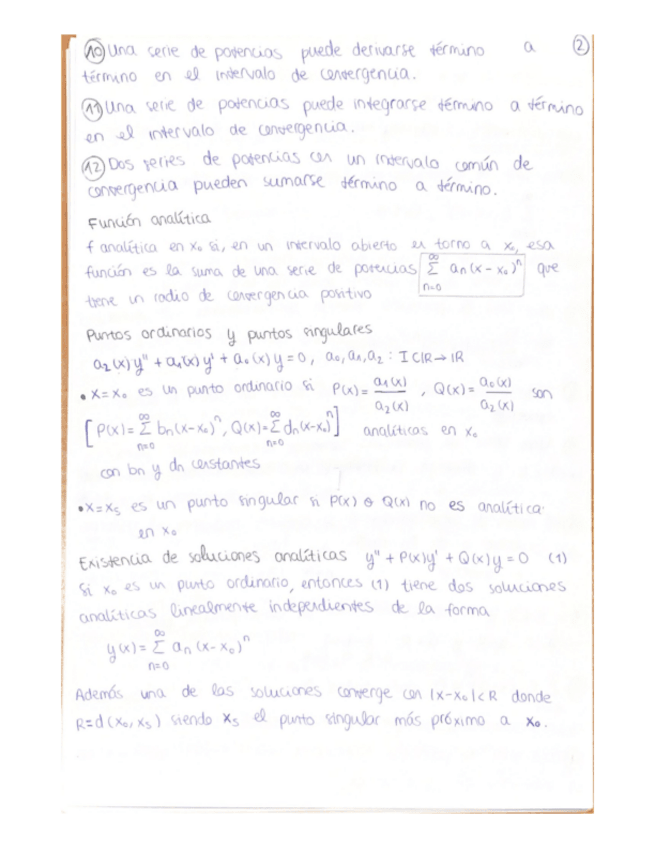 ⑩ Una serie de potencias puede derivarse término a ②
término en el intervalo de convergencia.
⑪ Una serie de potencias puede integrarse término a término
en el intervalo de convergencia.
⑫ Dos series de potencias con un intervalo común de
convergencia pueden sumarse término a término.
Función analítica
f analítica en x₀ si, en un intervalo abierto en torno a x₀, esa
función es la suma de una serie de potencias ∑_{n=0}^{∞} aₙ(x-x₀)ⁿ que
tiene un radio de convergencia positivo
Puntos ordinarios y puntos singulares
a₂(x)y'' + a₁(x)y' + a₀(x)y = 0, a₀, a₁, a₂ : I⊂ℝ→ℝ
• x=x₀ es un punto ordinario si P(x)= a₁(x)/a₂(x), Q(x)= a₀(x)/a₂(x) son
[P(x)= ∑_{n=0}^{∞} bₙ(x-x₀)ⁿ, Q(x)= ∑_{n=0}^{∞} dₙ(x-x₀)ⁿ] analíticas en x₀
con bn y dn constantes
• x=xₛ es un punto singular si P(x) o Q(x) no es analítica
en x₀
Existencia de soluciones analíticas y'' + P(x)y' + Q(x)y = 0 (1)
Si x₀ es un punto ordinario, entonces (1) tiene dos soluciones
analíticas linealmente independientes de la forma
y(x)= ∑_{n=0}^{∞} aₙ(x-x₀)ⁿ
Además una de las soluciones converge con |x-x₀|<R donde
R=d(x₀, xₛ) siendo xₛ el punto singular más próximo a x₀.